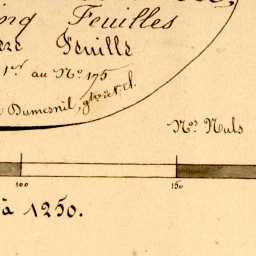 inq Feuilles
ère Feuille
1er au No 175
Dumesnil, géom.
Nos Nuls
100 150
à 1250.